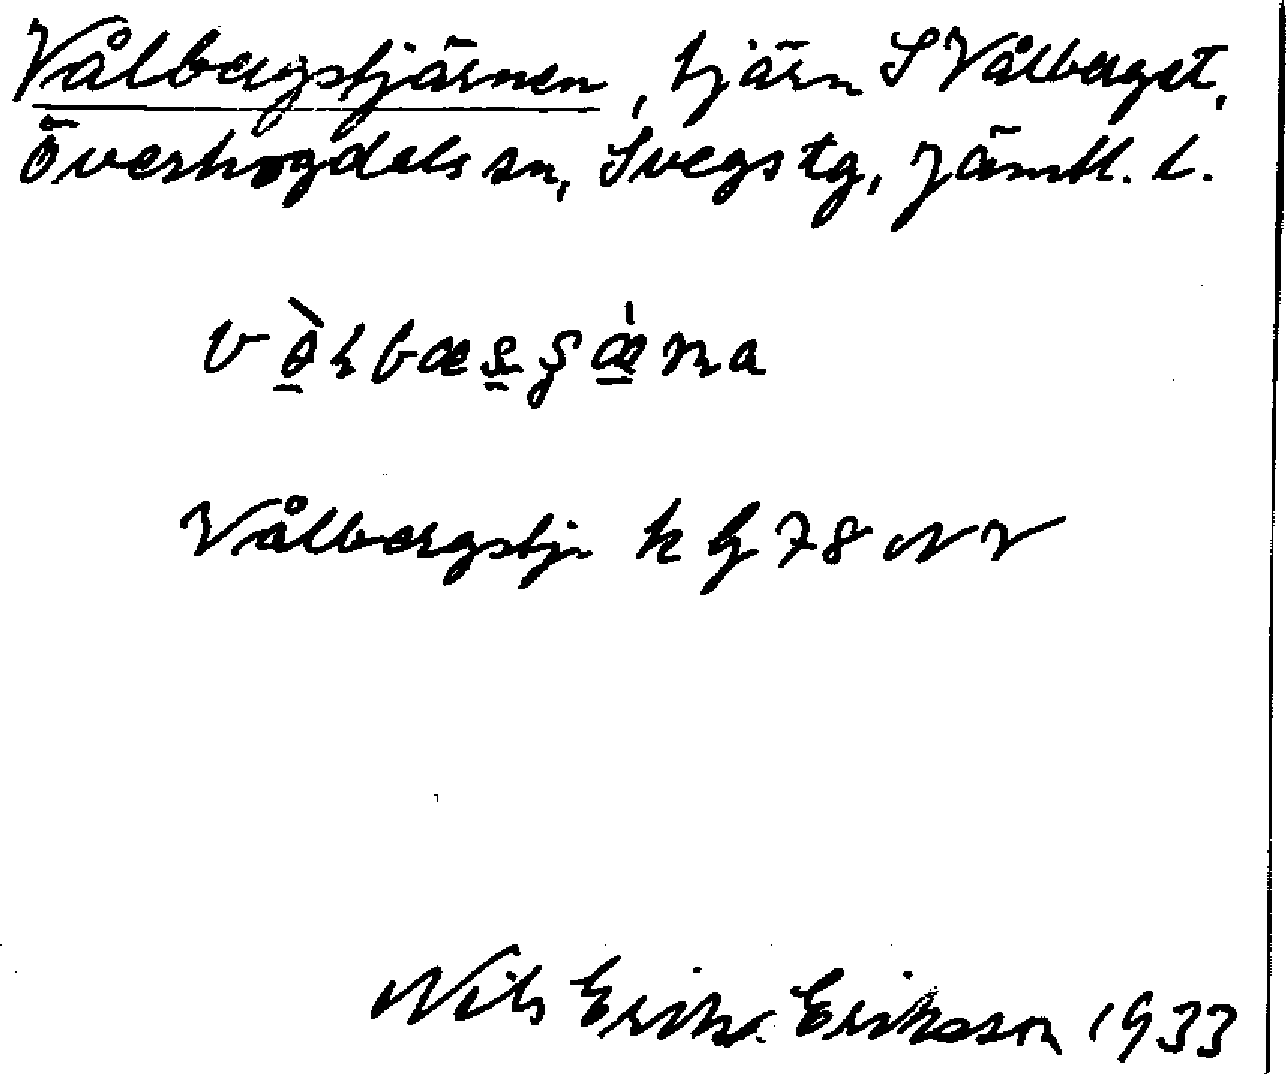 Vålbergstjärnen, tjärn S Vålberget,
Överhogdals sn, Svegs tg, Jämtl. l.
Vålbergstj. k bl 78 NV
Nils Erik Eriksson 1933